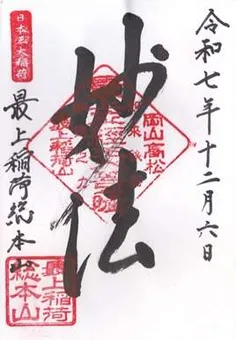 令和七年十二月六日
妙法
岡山高松
最上稲荷山
日本三大稲荷
最上稲荷総本山
最上稲荷
総本山